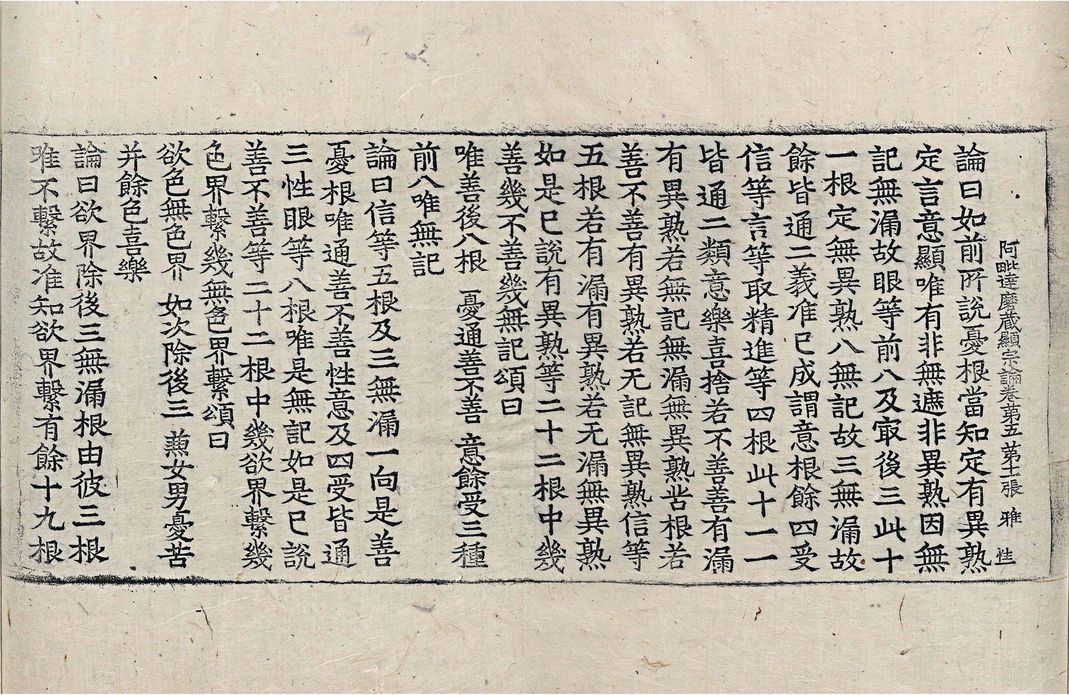 阿毗達磨藏顯宗論卷第五 第十張 雅
論曰如前所說憂根當知定有異熟
定言意顯唯有非無遮非異熟因無
記無漏故眼等前八及㝡後三此十
一根定無異熟八無記故三無漏故
餘皆通二義准已成謂意根餘四受
信等言等取精進等四根此十一一
皆通二類意樂喜捨若不善善有漏
有異熟若無記無漏無異熟苦根若
善不善有異熟若无記無異熟信等
五根若有漏有異熟若无漏無異熟
如是已說有異熟等二十二根中幾
善幾不善幾無記頌曰
唯善後八根 憂通善不善 意餘受三種
前八唯無記
論曰信等五根及三無漏一向是善
憂根唯通善不善性意及四受皆通
三性眼等八根唯是無記如是已說
善不善等二十二根中幾欲界繫幾
色界繫幾無色界繫頌曰
欲色無色界 如次除後三 兼女男憂苦
并餘色喜樂
論曰欲界除後三無漏根由彼三根
唯不繫故准知欲界繫有餘十九根